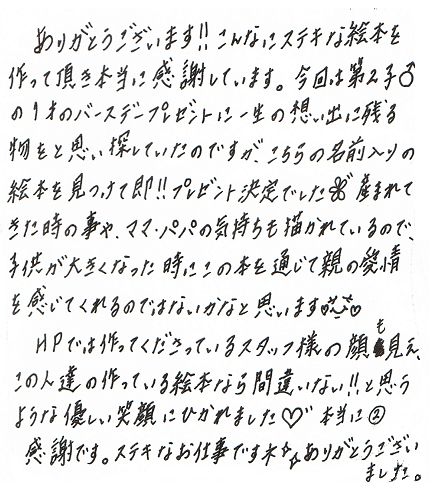 ありがとうございます!!こんなにステキな絵本を
作って頂き本当に感謝しています。今回は第2子♂
の1才のバースデープレゼントに一生の想い出に残る
物をと思い探していたのですが、こちらの名前入りの
絵本を見つけて即!!プレゼント決定でした 産まれて
きた時の事や、ママ・パパの気持ちも描かれているので、
子供が大きくなった時にこの本を通じて親の愛情
を感じてくれるのではないかなと思います
HPでは作ってくださっているスタッフ様の顔も見え、
この人達の作っている絵本なら間違いない!!と思う
ような優しい笑顔にひかれました♡本当に②
感謝です。ステキなお仕事ですネ☆ありがとうござい
ました。